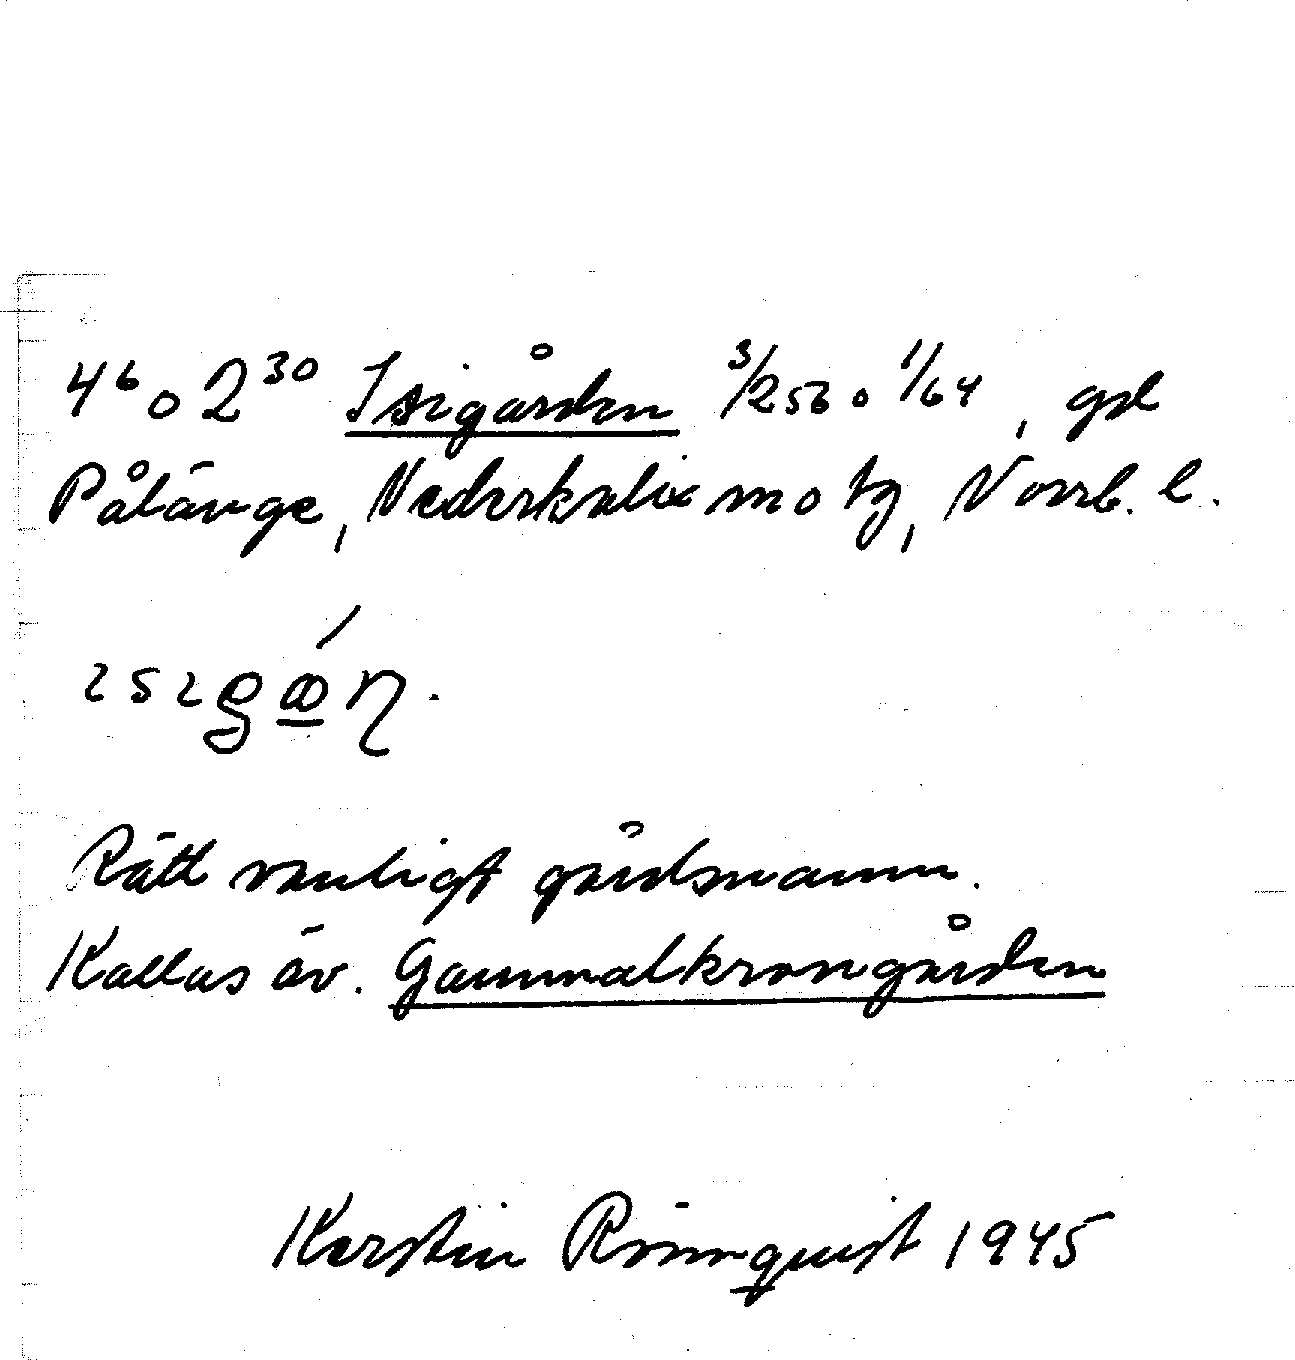 4⁶ o 2³⁰ Isigården 3/256 o 1/64, gd
Pålänge, Nederkalix sn o tg, Norrb. l.
Rätt vanligt gårdsnamn.
Kallas äv. Gammalkrongården
Kerstin Rönnquist 1945